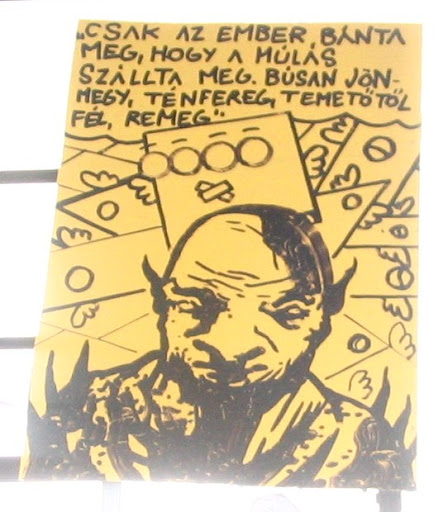 „CSAK AZ EMBER BÁNTA
MEG, HOGY A MÚLÁS
SZÁLLTA MEG. BÚSAN JÖN-
MEGY, TÉNFEREG, TEMETŐTŐL
FÉL, REMEG"